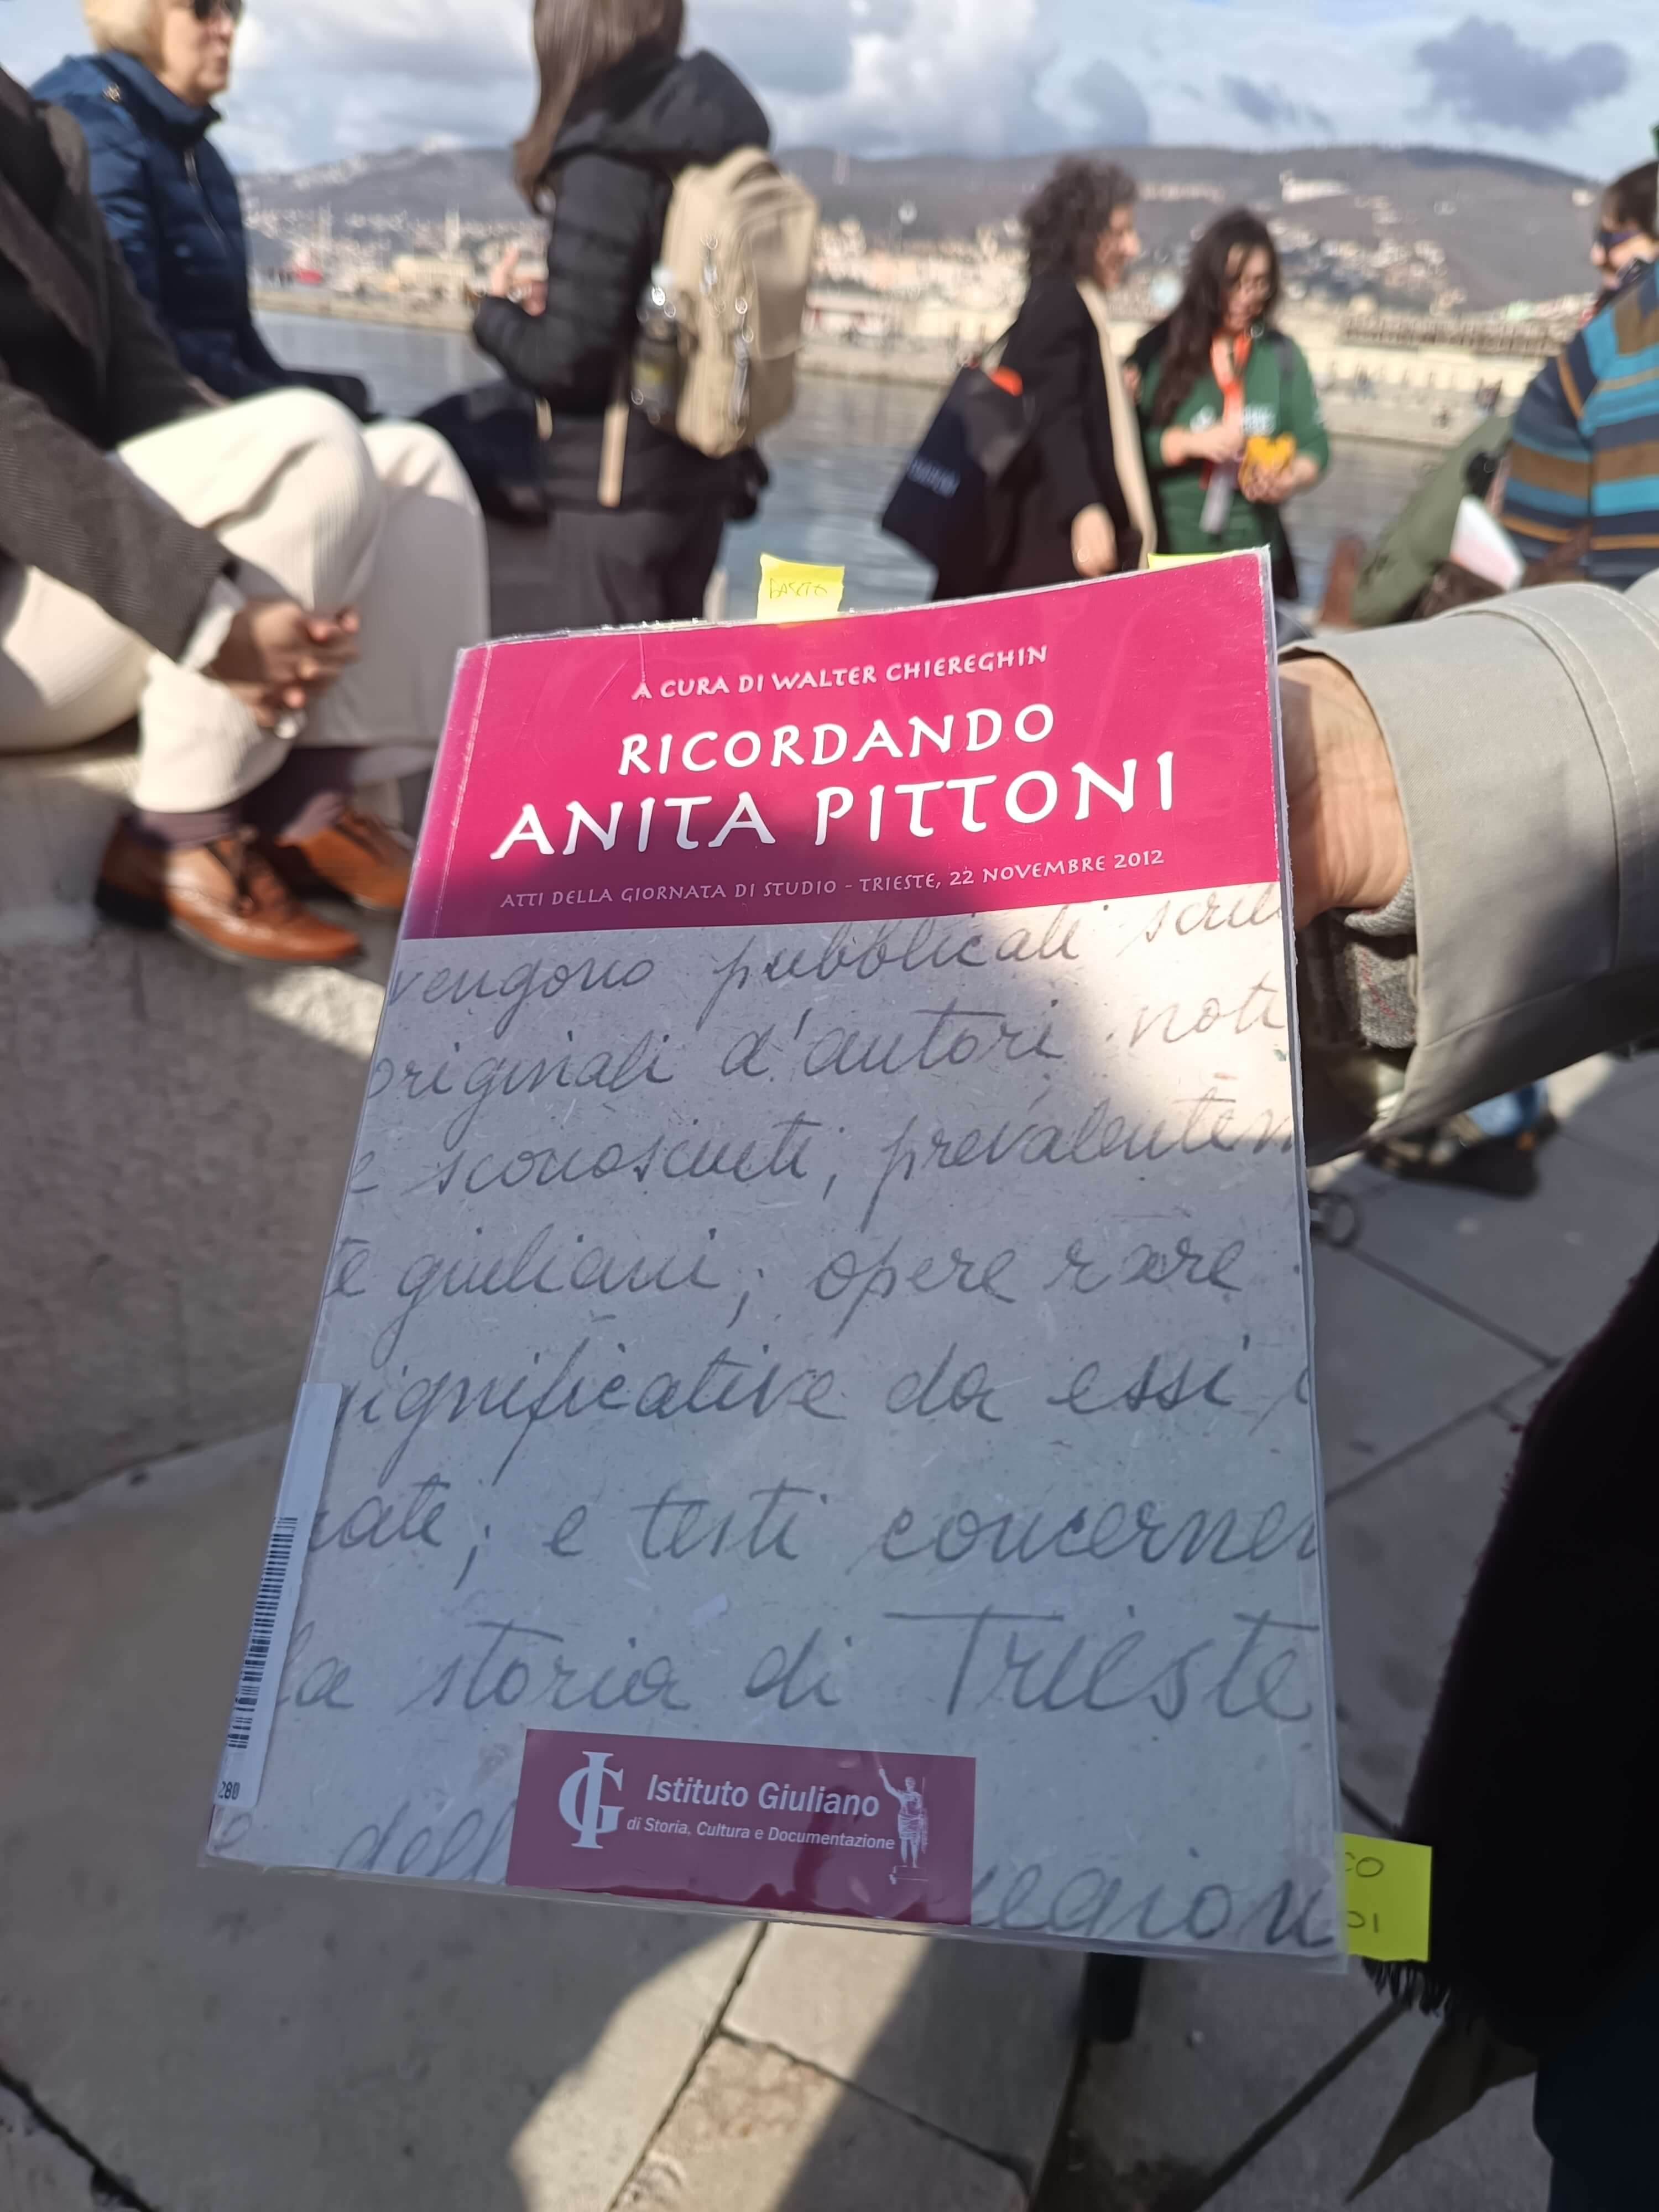 A CURA DI WALTER CHIEREGHIN
RICORDANDO
ANITA PITTONI
ATTI DELLA GIORNATA DI STUDIO - TRIESTE, 22 NOVEMBRE 2012
vengono pubblicati
originali d'autori noti
e sconosciuti, prevalentem
te giuliani; opere rare
significative da essi
rate; e testi concernen
la storia di Trieste
dell region
IG Istituto Giuliano
di Storia, Cultura e Documentazione
280
CO
DI